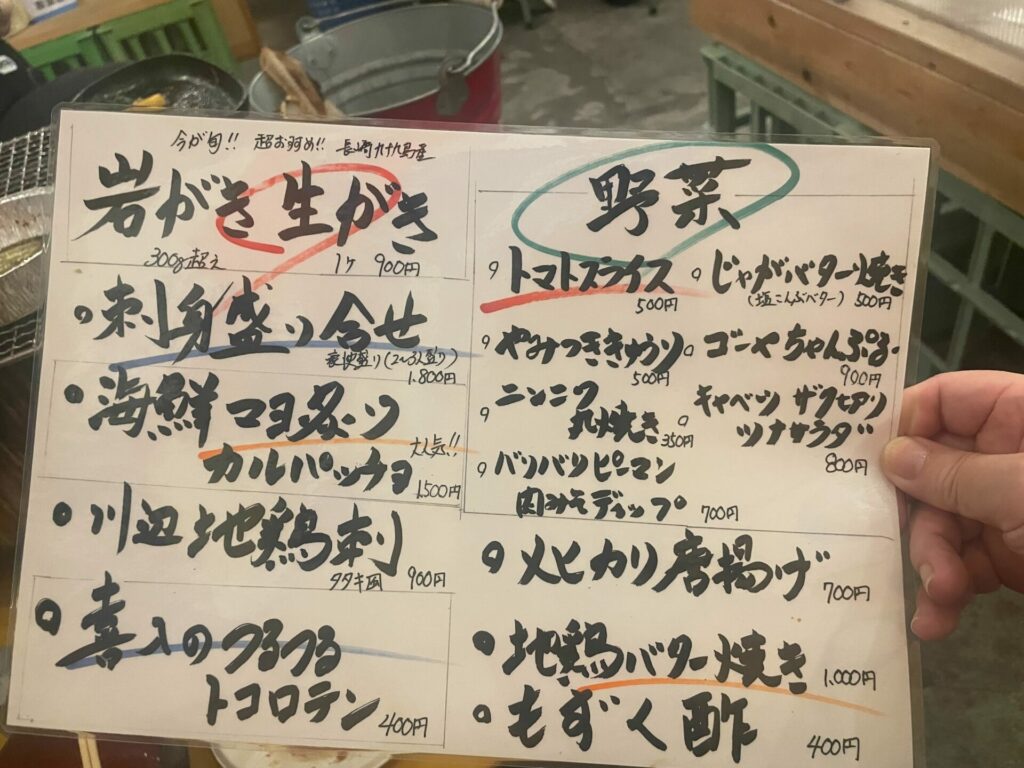 今が旬!! 超お勧め!! 長崎九十九島産
岩がき 生がき
300g超え 1ケ 900円
刺身盛り合せ
豪快盛り(2〜3人盛り)
1.800円
海鮮 マヨ多べソ
大人気!!
カルパッチョ 1.500円
川辺地鶏刺
タタキ風 900円
喜入のつるつる
トコロテン 400円
野菜
トマトスライス
500円
じゃがバター焼き
(塩こんぶバター) 500円
やみつききゅうり
500円
ゴーやちゃんぷるー
900円
ニンニク
丸焼き 350円
キャベツ ザクセロリ
ツナサラダ
800円
バリバリピーマン
肉みそディップ 700円
メヒカリ唐揚げ
700円
地鶏バター焼き 1.000円
もずく酢
400円